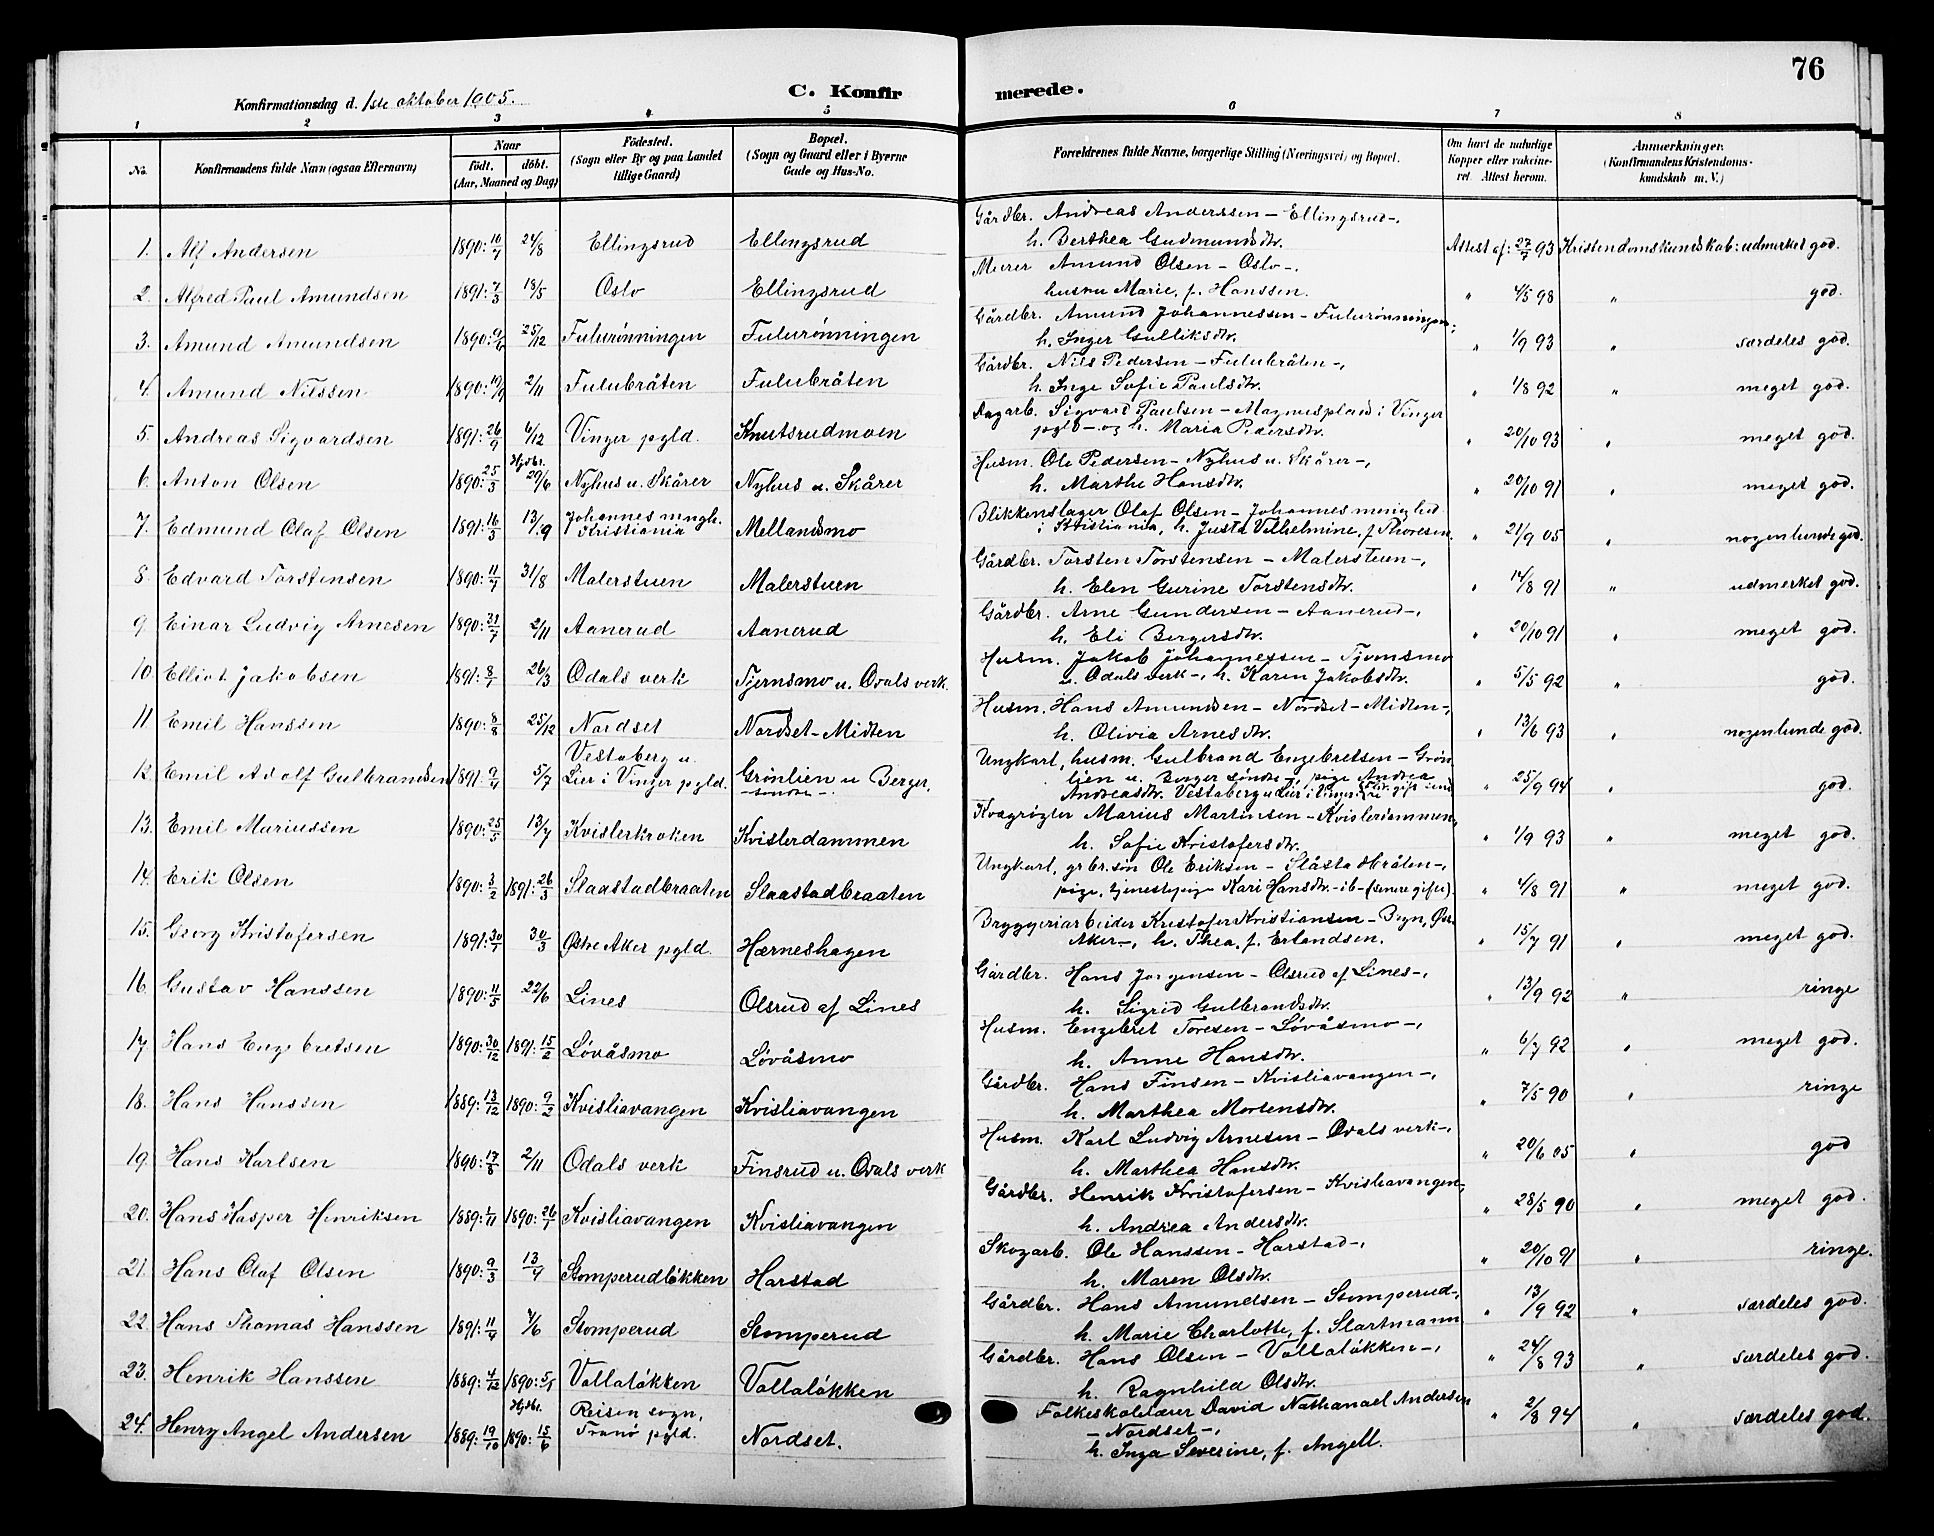 76
Konfirmationsdag d. 1ste oktober 1905.
C. Konfirmerede.
1 2 3 4 5 6 7 8
No. Konfirmandens fulde Navn (ogsaa Efternavn) Naar født. døbt. (Aar, Maaned og Dag) Fødested. (Sogn eller By og paa Landet tillige Gaard) Bopæl. (Sogn og Gaard eller i Byerne Gade og Hus-No. Forældrenes fulde Navne, borgerlige Stilling (Næringsvei) og Bopæl. Om havt de naturlige Kopper eller vakcineret. Attest herom. Anmærkninger. (Konfirmandens Kristendomskundskab m. V.)
1. Alf Andersen 1890: 10/7 24/8 Ellingsrud Ellingsrud Gårdbr. Andreas Anderssen – Ellingsrud –, h. Berthea Gudmundsdtr. Attest af: 27/7 93 Kristendomskundskab: udmerket god.
2. Alfred Paul Amundsen 1891: 7/3 18/5 Oslo Ellingsrud Murer Amund Olsen – Oslo –, hustru Marie, f. Hanssen. " 4/5 98 " god.
3. Amund Amundsen 1890: 9/6 25/12 Fulurønningen Fulurønningen Gårdbr. Amund Johannessen – Fulurønningen –, h. Inger Gulliksdtr. " 1/9 93 " særdeles god.
4. Amund Nilssen 1890: 19/9 2/11 Fulubråten Fulubråten Gårdbr. Nils Pedersen – Fulubråten –, h. Inge Sofie Paulsdtr. " 1/8 92 " meget god.
5. Andreas Sigvardsen 1891: 26/9 6/12 Vinger pgld. Knutsrudmoen Dagarb. Sigvard Paulsen – Magnusplads i Vinger pgld – og h. Maria Pedersdtr. " 20/10 93 " meget god.
6. Anton Olsen 1890: 25/3 Hjdbt. 29/6 Nyhus u. Skårer Nyhus u. Skårer Husm. Ole Pedersen – Nyhus u. Skårer –, h. Marthe Hansdtr. " 20/10 91 " meget god.
7. Edmund Olaf Olsen 1891: 16/3 13/9 Johannes mngh. Kristiania Mellandsmo Blikkenslager Olaf Olsen – Johannes menighed i Kristiania, h. Justa Vilhelmine, f. Thoresen. " 21/9 05 " nogenlunde god.
8. Edvard Torstensen 1890: 11/7 31/8 Malerstuen Malerstuen Gårdbr. Torsten Torstensen – Malerstuen –, h. Elen Gurine Torstensdtr. " 14/8 91 " udmerket god.
9. Einar Ludvig Arnesen 1890: 31/7 2/11 Aanerud Aanerud Gårdbr. Arne Gundersen – Aanerud –, h. Eli Bergersdtr. " 20/10 91 " meget god.
10. Elliot Jakobsen 1891: 8/1 26/3 Odals verk Tjernsmo u. Odals verk. Husm. Jakob Johannessen – Tjernsmo u. Odals verk –, h. Karen Jakobsdtr. " 5/5 92 " god.
11 Emil Hanssen 1890: 8/8 25/12 Nordset Nordset-Midten Husm. Hans Amundsen – Nordset-Midten –, h. Olivia Arnesdtr. " 13/6 93 " nogenlunde god.
12. Emil Adolf Gulbrandsen 1891: 9/4 5/7 Vestaberg u. Lier i Vinger pgld. Grönlien u Berger, søndre –. Ungkarl, husm. Gulbrand Engebretsen – Grönlien u. Berger søndre –, pige Andrea Andreasdtr. Vestaberg u Lier i Vinger " 25/9 94 " god.
13. Emil Mariussen 1890: 25/5 13/7 Kvislerkroken Kvislerdammen Kvægrøgter Marius Martinsen – Kvislerdammen, h. Sofie Kristofersdtr. " 1/9 93 " meget god.
14. Erik Olsen 1890: 3/2 1891: 26/3 Slaastadbraaten Slaastadbraaten Ungkarl, grbr.søn Ole Eriksen – Slåstadbråten –, pige, tjenestepige Kari Hansdtr. – ib – (senere gifte). " 4/8 91 " meget god.
15. Georg Kristofersen 1891: 30/1 30/3 Østre Aker pgld. Hærneshagen Bryggeriarbeider Kristofer Kristiansen – Bryn, Østre Aker –, h. Thea, f. Erlandsen. " 15/7 91 " meget god.
16. Gustav Hanssen 1890: 11/5 22/6 Lines Olsrud af Lines Gårdbr. Hans Jorgensen – Olsrud af Lines –, h. Sigrid Gulbrandsdtr. " 13/9 92 " ringe
17. Hans Engebretsen 1890: 30/12 1891: 15/2 Løvåsmo Løvåsmo Husm. Engebret Toresen – Løvåsmo –, h. Anne Hansdtr. " 6/7 92 " meget god.
18. Hans Hanssen 1889: 13/12 1890: 9/2 Kvisliavangen Kvisliavangen Gårdbr. Hans Finsen – Kvisliavangen –, h. Marthea Mortensdtr. " 7/5 90 " ringe
19. Hans Karlsen 1890: 17/8 2/11 Odals verk Finsrud u. Odals verk Husm. Karl Ludvig Arnesen – Odals verk –, h. Marthea Hansdtr. " 20/6 05 " god
20. Hans Kasper Henriksen 1889: 1/11 1890: 26/1 Kvisliavangen Kvisliavangen Gårdbr. Henrik Kristofersen – Kvisliavangen –, h. Andrea Andersdtr. " 28/5 90 " meget god.
21. Hans Olaf Olsen 1890: 9/3 13/4 Stomperudløkken Harstad Skogarb. Ole Hanssen – Harstad –, h. Maren Olsdtr. " 20/10 91 " ringe.
22. Hans Thomas Hanssen 1891: 11/4 7/6 Stomperud Stomperud Gårdbr. Hans Amundsen – Stomperud –, h. Marie Charlotte, f. Startmann " 13/9 92 " særdeles god.
23. Henrik Hanssen 1889: 4/12 1890: 5/1 Vollaløkken Vollaløkken Gårdbr. Hans Olsen – Vollaløkken –, h. Ragnhild Olsdtr. " 24/8 93 " særdeles god.
24. Henry Angel Andersen 1889: 19/10 Hjdbt. 1890: 15/6 Reisen sogn, Tranø pgld. Nordset. Folkeskolelærer David Nathanael Andersen – Nordset –, h. Inga Severine, f. Angell. " 2/8 94 " særdeles god.